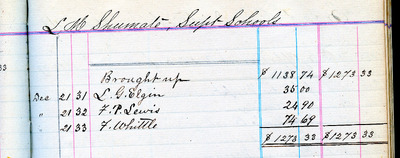 L M Shumate, Supt Schools
Brought up $1138 74 $1273 33
Dec 21 31 L. G. Elgin 35 00
" 21 32 F. P. Lewis 24 90
" 21 33 F. Whittle 74 69
$1273 33 $1273 33